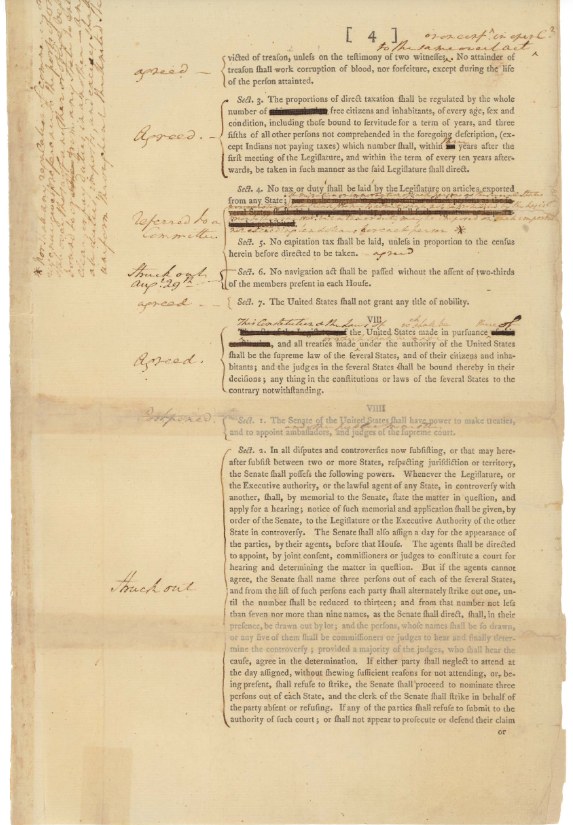 [ 4 ]
to the same overt act
victed of treason, unless on the testimony of two witnesses. No attainder of
agreed —
treason shall work corruption of blood, nor forfeiture, except during the life
of the person attainted.
Sect. 3. The proportions of direct taxation shall be regulated by the whole
number of free citizens and inhabitants, of every age, sex and
Agreed. —
condition, including those bound to servitude for a term of years, and three
fifths of all other persons not comprehended in the foregoing description, (ex-
cept Indians not paying taxes) which number shall, within years after the
first meeting of the Legislature, and within the term of every ten years after-
wards, be taken in such manner as the said Legislature shall direct.
Sect. 4. No tax or duty shall be laid by the Legislature on articles exported
from any State;
referred to a
committee
Sect. 5. No capitation tax shall be laid, unless in proportion to the census
herein before directed to be taken. — agreed
Struck out
Aug. 29th
Sect. 6. No navigation act shall be passed without the assent of two-thirds
of the members present in each House.
agreed —
Sect. 7. The United States shall not grant any title of nobility.
VIII
This Constitution & the Laws of
the United States made in pursuance
of, and all treaties made under the authority of the United States
Agreed.
shall be the supreme law of the several States, and of their citizens and inha-
bitants; and the judges in the several States shall be bound thereby in their
decisions; any thing in the constitutions or laws of the several States to the
contrary notwithstanding.
VIIII
Postponed
Sect. 1. The Senate of the United States shall have power to make treaties,
and to appoint ambassadors, and judges of the supreme court.
Sect. 2. In all disputes and controversies now subsisting, or that may here-
after subsist between two or more States, respecting jurisdiction or territory,
the Senate shall possess the following powers. Whenever the Legislature, or
the Executive authority, or the lawful agent of any State, in controversy with
another, shall, by memorial to the Senate, state the matter in question, and
apply for a hearing; notice of such memorial and application shall be given, by
order of the Senate, to the Legislature or the Executive Authority of the other
State in controversy. The Senate shall also assign a day for the appearance of
the parties, by their agents, before that House. The agents shall be directed
to appoint, by joint consent, commissioners or judges to constitute a court for
hearing and determining the matter in question. But if the agents cannot
agree, the Senate shall name three persons out of each of the several States,
Struck out
and from the list of such persons each party shall alternately strike out one, un-
til the number shall be reduced to thirteen; and from that number not less
than seven nor more than nine names, as the Senate shall direct, shall, in their
presence, be drawn out by lot; and the persons, whose names shall be so drawn,
or any five of them shall be commissioners or judges to hear and finally deter-
mine the controversy; provided a majority of the judges, who shall hear the
cause, agree in the determination. If either party shall neglect to attend at
the day assigned, without shewing sufficient reasons for not attending, or, be-
ing present, shall refuse to strike, the Senate shall proceed to nominate three
persons out of each State, and the clerk of the Senate shall strike in behalf of
the party absent or refusing. If any of the parties shall refuse to submit to the
authority of such court; or shall not appear to prosecute or defend their claim
or